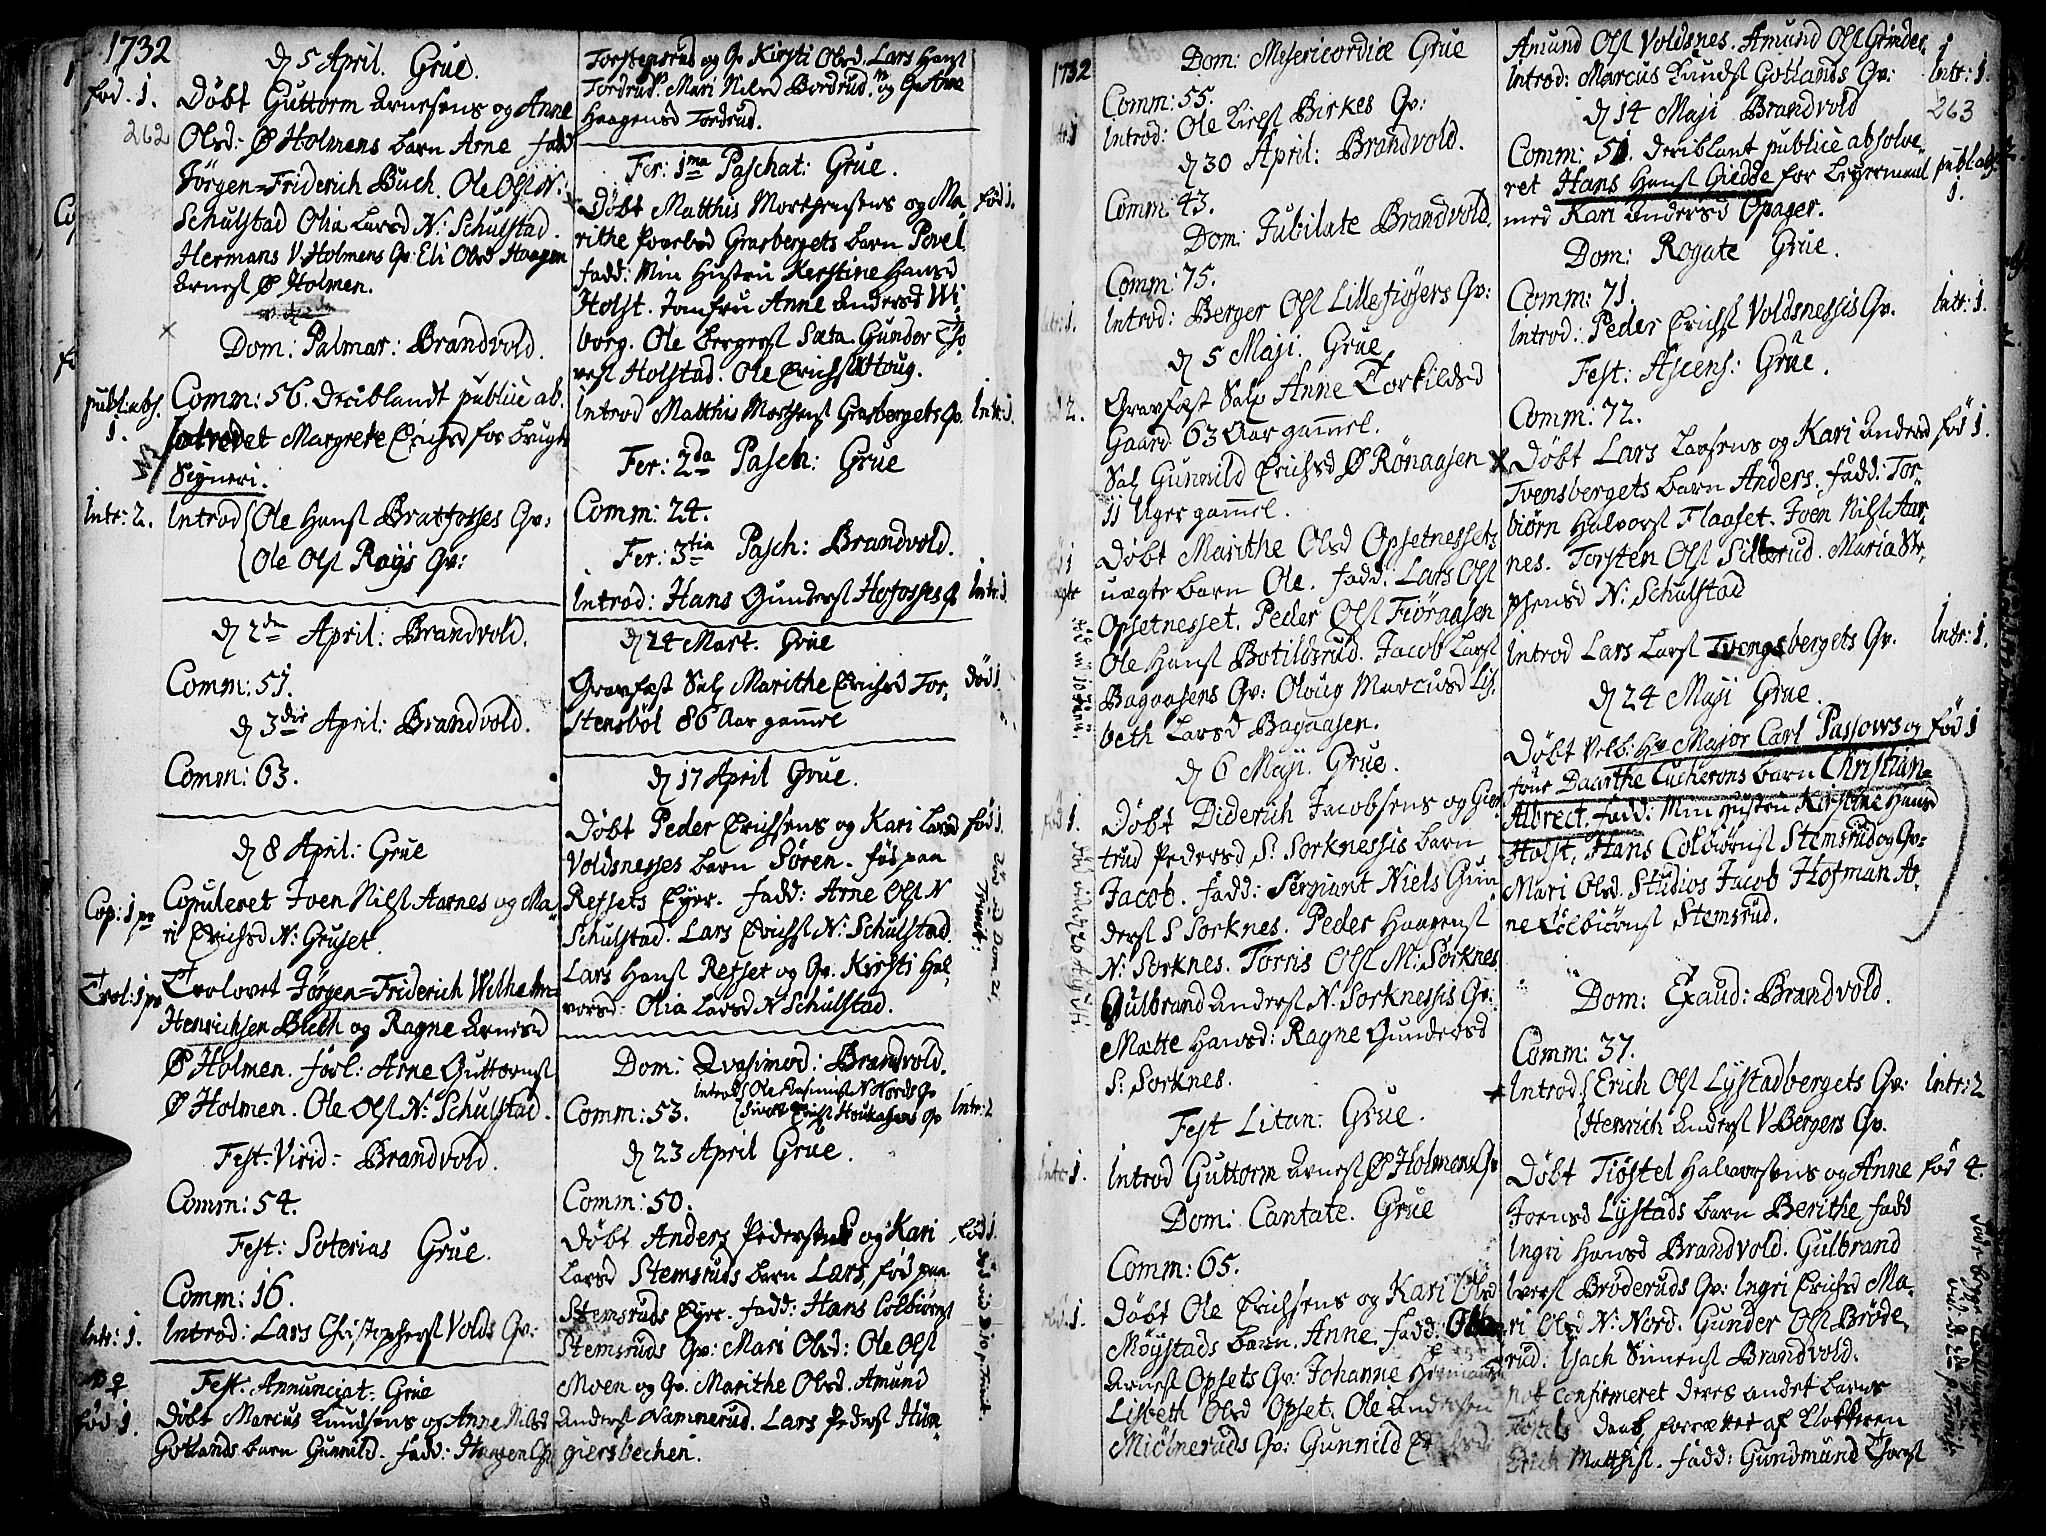 1732
262
d 5 April. Grue.
fød: 1.
Døbt Guttorm Arnesens og Anne
Olsd: Ø Holmens barn Arne fadd
Jørgen=Friderich Buch. Ole Ols N:
Schulstad Olia Larsd N: Schulstad.
Hermans V. Holmens Qv: Eli Olsd Haagen
Arnes Ø Holmen.
Dom: Palmar: Brandvold.
publ: abs. 1.
Comm: 56. Desiblandt publice ab.
solveret Margrete Erichsd for brugte
Signeri.
Intr: 2.
Introd Ole Hans Bratfosses Qv:
Ole Ols Røgs Qv:
d 2den April: Brandvold.
Comm: 51.
d 3die April: Brandvold.
Comm: 63.
d 8 April: Grue
Cop: 1 pr
Copuleret Iven Nils Aarnes og Ma
ri Erichsd N: Gruset.
Trol: 1 pr
Trolovet Jørgen=Friderich Wilhelm=
Henrichsen Buch og Ragne Arnesd
Ø Holmen. forl: Arne Guttorms
Ø Holmen. Ole Ols N: Schulstad.
Fest: Virid: Brandvold.
Comm: 54.
Fest: Soterias Grue.
Comm: 16.
Intr: 1.
Introd: Lars Christophers Volds Qv:
Fest. Annunciat: Grue
fød 1.
Døbt Marcus Knudsens og Anne Nilsd
Gotlands barn Gunnild. fadd: Haagen
Torstensrud og Qv Kirsti Olsd. Lars Hans
Tordrud. Mari Nilsd Bordrud og Anne
Haagensd Tordrud.
Fer: 1ma Paschat: Grue.
fød 1.
Døbt Matthis Morthensens og Ma
rithe Povelsd Grasbergets barn Povel.
fadd: Min Hustru Kerstine Hansd
Holst. Jomfru Anne Andersd Wi
borg. Ole Bergers Sæta. Gunder Tho
res Holstad. Ole Erichs Houg.
Introd Matthis Morthens Grasbergets Qv.
Intr: 1.
Fer: 2da Pasch: Grue
Comm: 24.
Fer: 3tia Pasch: Brandvold.
Introd: Hans Gunders Hofosses Q
Intr: 1
d 24 Mart. Grue
Gravfæst Sal Marithe Erichsd Tor,
stensbøl 86 Aar gammel
død 1.
d 17 April Grue.
Døbt Peder Erichsens og Kari Larsd
fød 1.
Voldsnesses barn Søren. fød paa
Refsets Eyer. fadd: Arne Ols N
Schulstad. Lars Erichs N: Schulstad.
Lars Hans Refset og Qv. Kirsti Hal,
vorsd. Olia Larsd N Schulstad.
Dom: Qvasimod: Brandvold.
Introd Ole Rasmus N. Nords Qv
Comm: 53.
Intr: 2
d 23 April Grue.
Comm: 50.
Døbt Anders Pedersens og Kari
fød 1.
Larsd Stemsruds barn Lars, fød paa
Stemsruds Eyer. fadd: Hans Colbiørns
Stemsruds Qv: Mari Olsd: Ole Ols
Moen og Qv. Marithe Olsd. Amund
Anders Nammerud. Lars Peders Hun,
giersbechen.
1732
Dom: Misericordiæ Grue
Comm: 55.
Introd: Ole Birkes Qv:
d 30 April: Brandvold.
Comm 43.
Dom: Jubilate Brandvold.
Comm: 75.
Intr: 1.
Introd: Berger Ols Lilletiøsers Qv:
d 5 Maji. Grue
Gravfæst Sal Anne Torkildsd
Gaard 63 Aar gammel.
Sal Gunnild Erichsd Ø Rønaasen
11 Uger gammel.
Døbt Marithe Olsd Opsetnessets
uægte barn Ole. fadd. Lars Ols
Opsetnesset. Peder Ols Fiøraasen
Ole Hans Botilsrud. Jacob Lars
Bagaasens Qv: Oloug Marcusd Lis,
beth Larsd Bagaasen.
d 6 Maji. Grue.
fød 1.
Døbt Diderich Jacobsens og Gier
trud Pedersd S. Sorknessis barn
Jacob. fadd: Sergiant Niels Gun
ders S Sorknes. Peder Haagens
N: Sorknes. Torris Ols M: Sorknes
Gulbrand Anders N. Sorknessis Qv:
Mætte Hansd: Ragne Gundersd
S: Sorknes.
Fest Litan: Grue.
Intr: 1.
Introd Guttorm Arnes Ø Holmens Qv
Dom: Cantate. Grue
Comm: 65.
fød: 1.
Døbt Ole Erichsens og Kari Olsd
Møystads barn. Anne. fadd:
Arnes Opsets Qv: Johanne
Lisbeth Olsd Opset. Ole Andersen
Miølneruds Qv: Gunnild
Amund Ols Voldsnes. Amund Ols Grinder
Introd: Marcus Knuds Gotlands Qv:
Intr: 1.
d 14 Maji Brandvold
263
Comm: 51. Desiblant publice absolve,
ret Hans Hans Giedde for Leyermaal
publ. abs. 1.
med Kari Andersd Opager.
Dom: Rogate Grue.
Comm: 71.
Introd: Peder Erichs Voldsnessis Qv.
Intr: 1.
Fest: Ascens: Grue.
Comm: 72.
Døbt Lars Larsens og Kari Andersd
fød 1.
Tvensbergets barn Anders. fadd: Tor,
biørn Halvors Flaaset. Iven Nils Aar,
nes. Torsten Ols Silkerud. Maria Ste,
phensd N: Schulstad
Introd Lars Lars Tvengsbergets Qv.
Intr: 1.
d 24 Maji Grue.
Døbt Velb: Hr Major Carl Passows og
fød 1
frue Daarthe Lucherons barn Christian=
Albrect. fadd: Min Hustru Kirstine Hansd
Holst, Hans Colbiørns Stemsrud og Qv:
Mari Olsd. Studios Jacob Hofman Ar,
ne Colbiørns Stemsrud.
Dom: Exaud: Brandvold.
Comm: 37.
Introd Erich Ols Lystadbergets Qv:
Intr: 2
Henrich Anders V Bergers Qv.
Døbt Tiøstel Halvorsens og Anne
fød 4.
Joensd Lystads barn Berithe fadd
Ingri Hansd Brandvold. Gulbrand
Ivers Brøderuds Qv: Ingri Erichsd Ma,
ri Olsd N: Nord. Gunder Ols Brøde,
rud. Isach Simens Brandvold.
not confirmeret deres andet barns
Tiøstels daab, forrættet af Klokkeren
Erich Matthis. fadd: Gundmund Thores